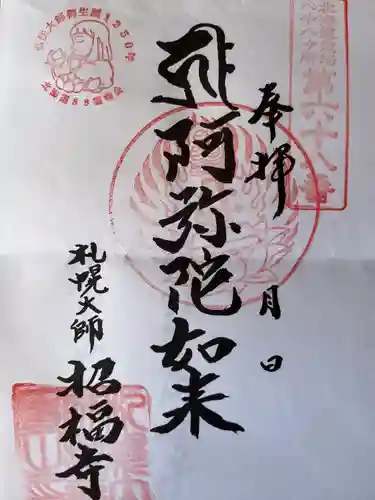 奉拝
月 日
阿弥陀如来
札幌大師
招福寺
弘法大師御生誕1250年
北海道88霊場会
北海道霊場
八十八ヶ所
第六十八番